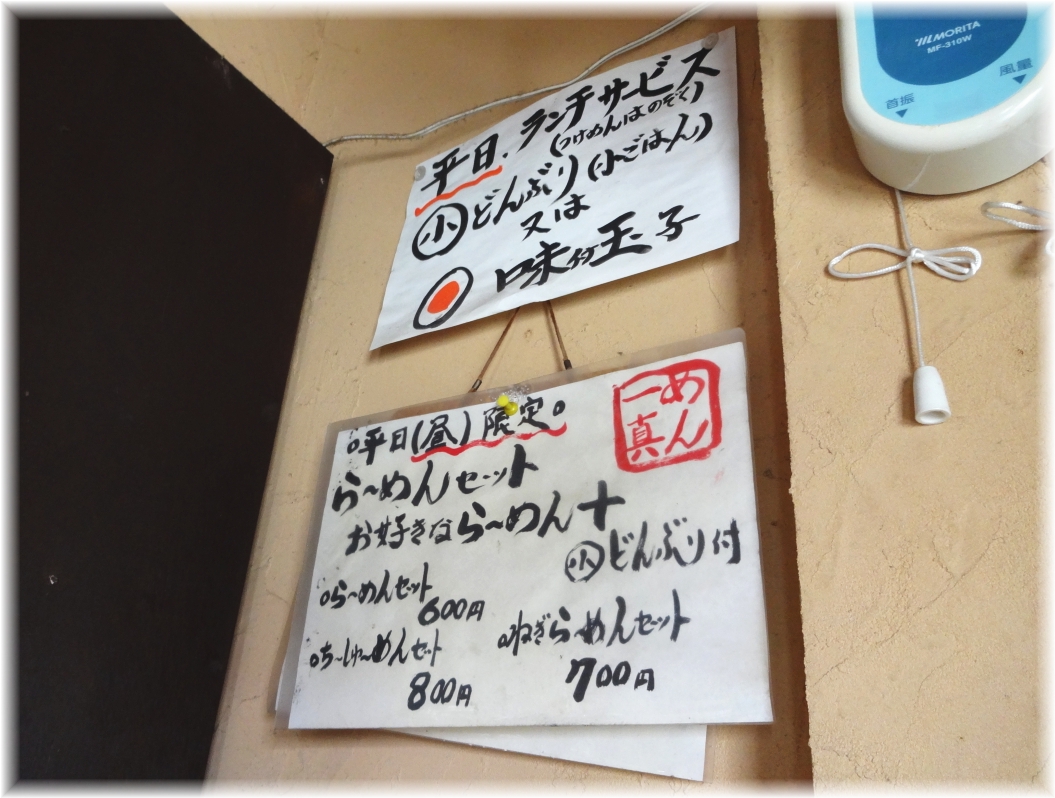 平日.ランチサービス
(つけめんはのぞく)
小どんぶり(小ごはん)
又は
味付玉子
平日(昼)限定
らーめんセット
お好きならーめん+
小どんぶり付
らーめんセット
600円
ちーしゅーめんセット
800円
ねぎらーめんセット
700円
めん
一真
MORITA
MF-310W
首振
風量